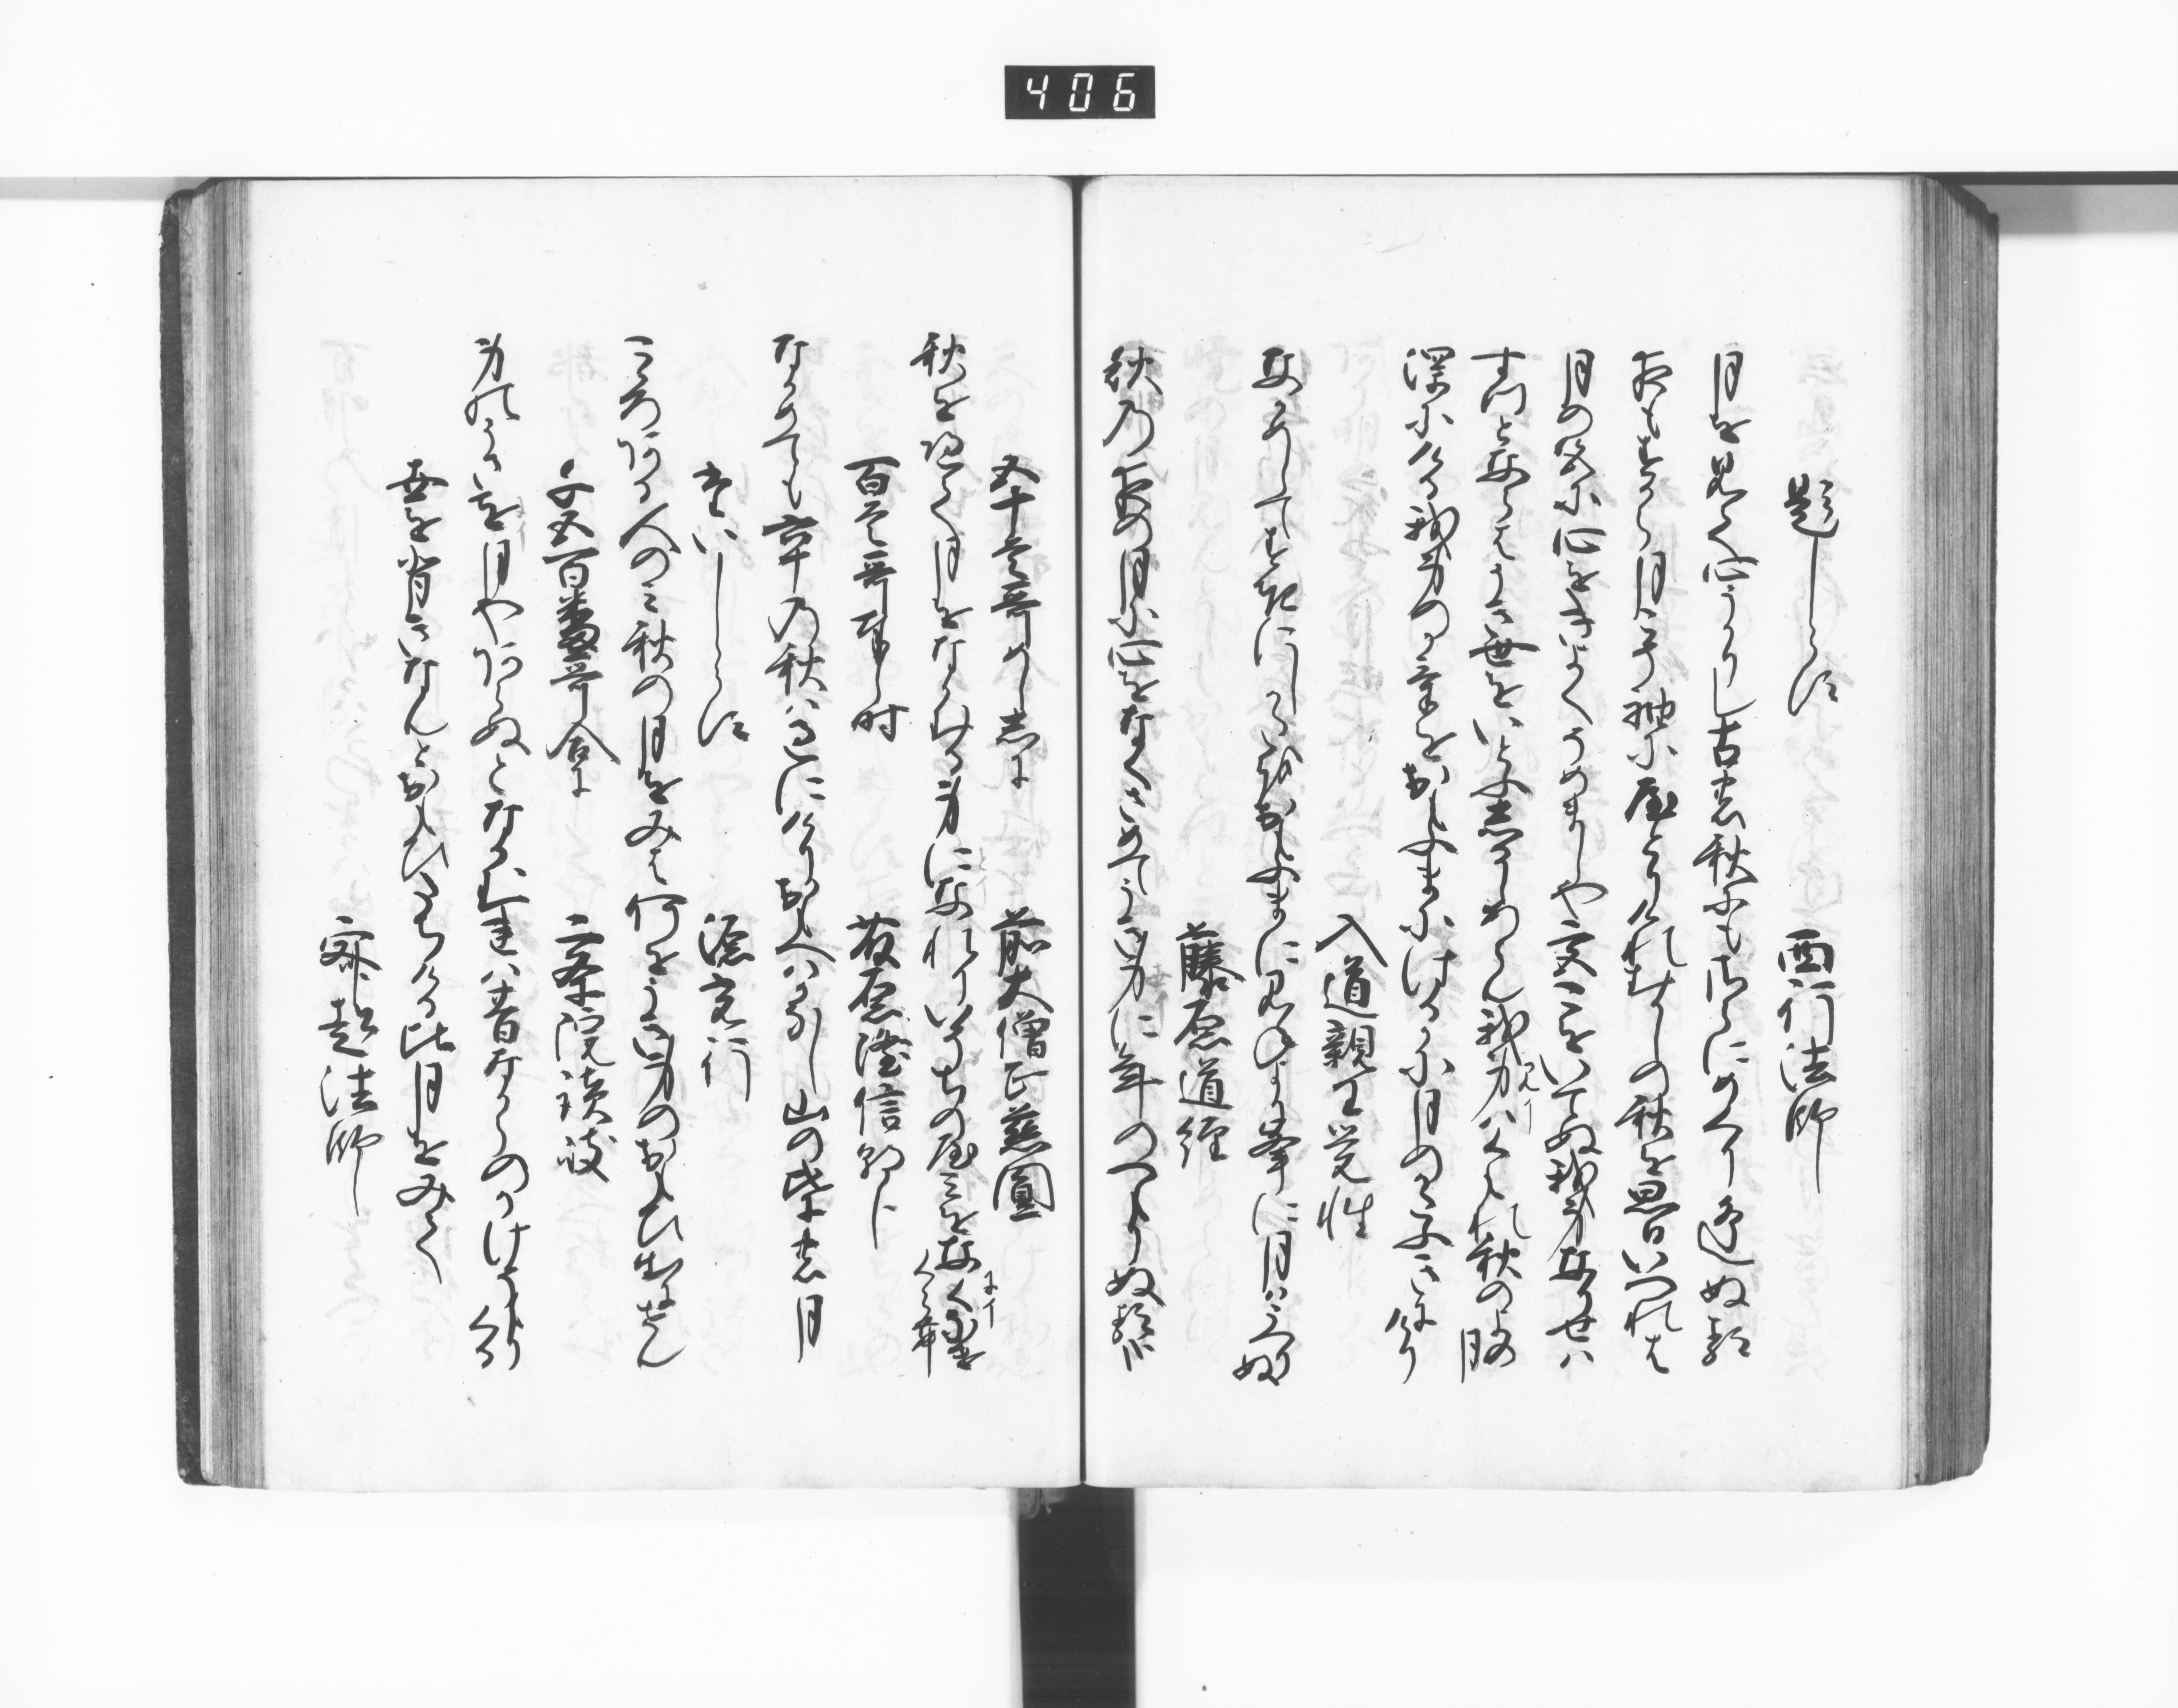 406
題しらす　西行法師
月を見て心うかれし古の秋にもさらにめくり逢ぬる
夜もすから月こそ袖にやとりけれむかしの秋を思ひいつれは
月の色に心をきよくそめましや宮こをいてぬ我身なりせは
すつとならはうき世をいとふしるしあらん我身はくもれ秋のよの月
深にける我身のかけをおもふまにはるかに月のかたふきにけり
入道親王覚性
なかめしてすきにしかたをおもふまに峯より峯に月はうつりぬ
藤原道経
秋の夜の月に心をなくさめてうき身に年のつもりぬる哉
五十首哥めししに　前大僧正慈圓
秋をへて月をなかむる身になれりいそちのやみをなになけくらん
百首哥奉し時　藤原隆信朝臣
なかめても六十の秋は過にけりおもへはかなし山のはの月
たいしらす　源光行
こゝろある人のみ秋の月をみは何をうき身のおもひ出にせん
千五百番哥合に　二条院讃岐
身のうさを月やあらぬとなかむれは昔なからのかけそもりくる
世を背きなんとおもひたちける比月をみて
寂超法師